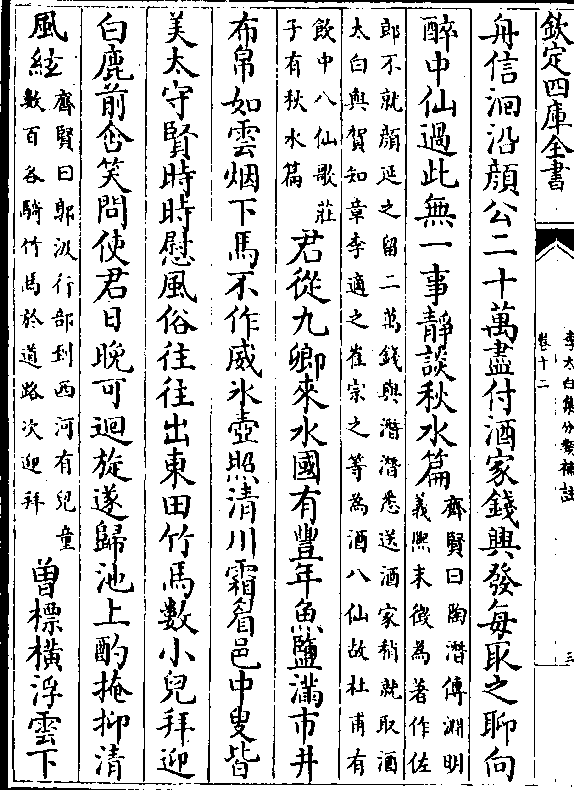 欽定四庫全書
李太白集分類補註
卷十二
三
舟信洄沿顔公二十萬盡付酒家錢興發每取之聊向
醉中仙過此無一事靜談秋水篇
齊賢曰陶潛傳淵明
義熙末徵為著作佐
郎不就顔延之留二萬錢與潛潛悉送酒家稍就取酒
太白與賀知章李適之崔宗之等為酒八仙故杜甫有
飲中八仙歌莊
子有秋水篇
君從九卿來水國有豐年魚鹽滿市井
布帛如雲烟下馬不作威氷壺照清川霜眉邑中叟皆
美太守賢時時慰風俗往往出東田竹馬數小兒拜迎
白鹿前含笑問使君日晚可迴旋遂歸池上酌掩抑清
風絃
齊賢曰郭汲行部到西河有兒童
數百各騎竹馬於道路次迎拜
曽標橫浮雲下